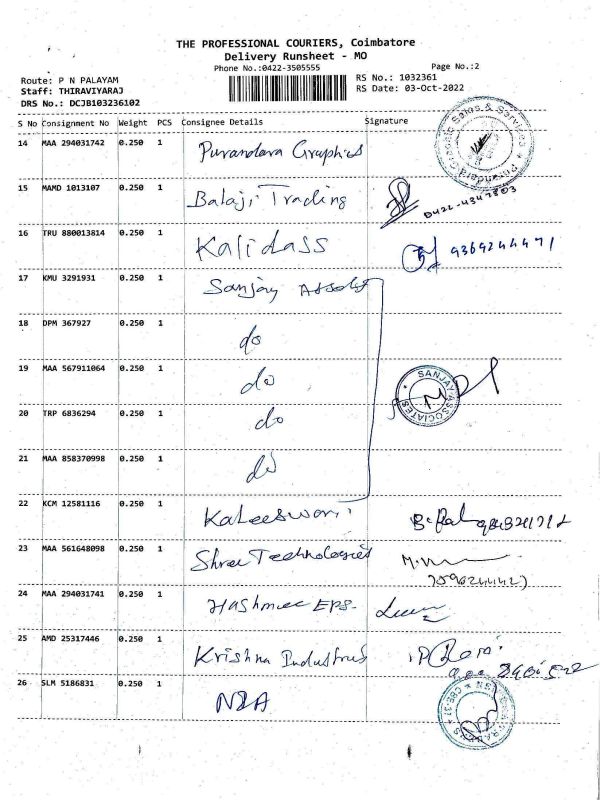 THE PROFESSIONAL COURIERS, Coimbatore
Delivery Runsheet - MO
Phone No.:0422-3505555
Page No.:2
Route: P N PALAYAM
RS No.: 1032361
Staff: THIRAVIYARAJ
RS Date: 03-Oct-2022
DRS No.: DCJB103236102
S No Consignment No Weight PCS Consignee Details Signature
14 MAA 294031742 0.250 1 Purandara Graphics
15 MAMD 1013107 0.250 1 Balaji Trading 0422-4347803
16 TRU 880013814 0.250 1 Kalidass 9369244471
17 KMU 3291931 0.250 1 Sanjay
18 DPM 367927 0.250 1 do
19 MAA 567911064 0.250 1 do SANJAY ASSOCIATES
20 TRP 6836294 0.250 1 do
21 MAA 858370998 0.250 1 do
22 KCM 12581116 0.250 1 Kaleeswari
23 MAA 561648098 0.250 1 Shree Technologies
24 MAA 294031741 0.250 1
25 AMD 25317446 0.250 1 Krishna Industries
26 SLM 5186831 0.250 1